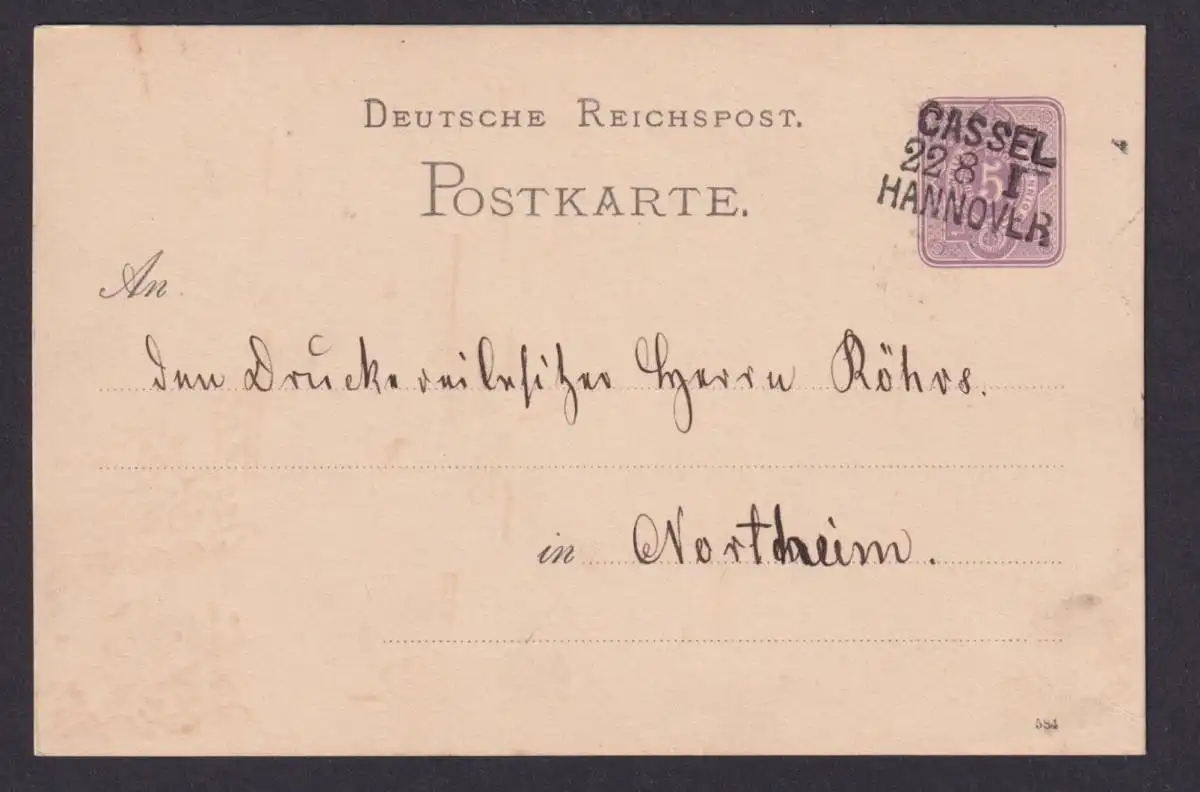 DEUTSCHE REICHSPOST.
POSTKARTE.
CASSEL
22 8 I
HANNOVER
5
An
den Druckereibesitzer Herrn Röhrs.
in Northeim.
584